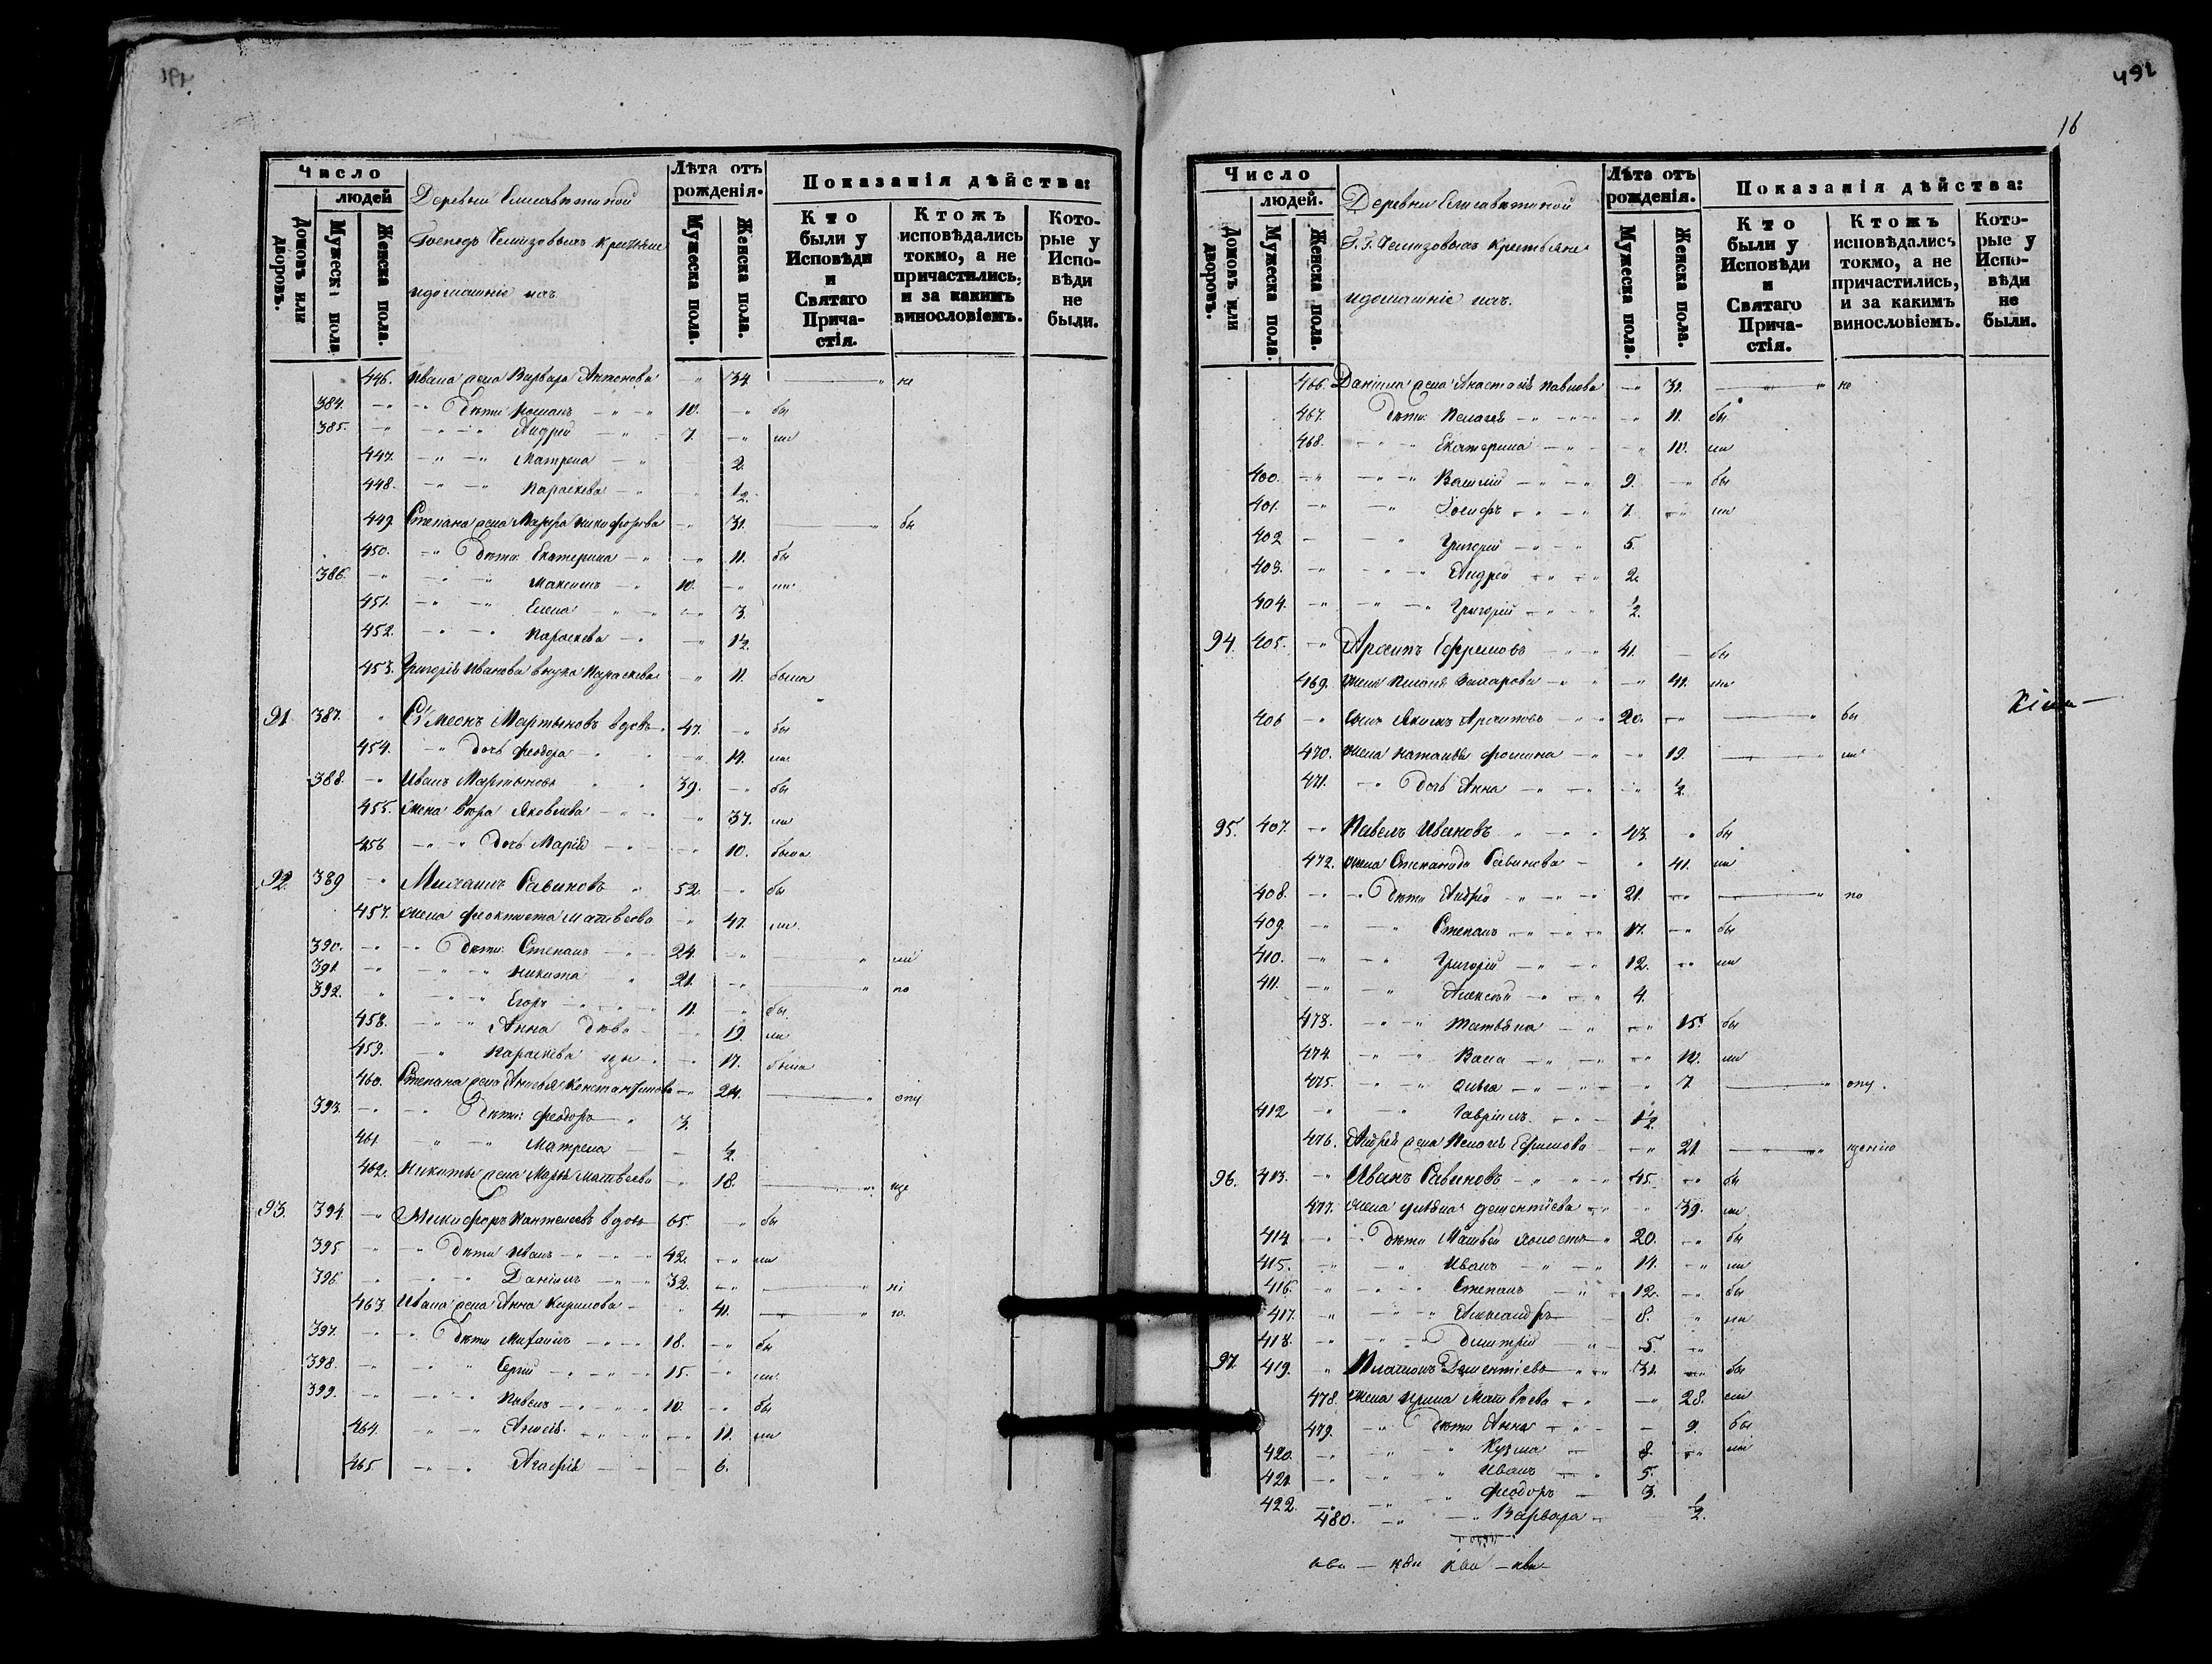 491
Число
людей
Домовъ или дворовъ.
Мужеска пола
Женска пола.
Деревни Елисаветиной
Господъ Чемизовыхъ крестьяне
и домашніе ихъ.
Лѣта отъ рожденія.
Мужеска пола.
Женска пола.
Показанія дѣйства:
Кто были у Исповѣди и Святаго Причастія.
Ктожъ исповѣдались токмо, а не причастились, и за какимъ винословіемъ.
Которые у Исповѣди не были.
446. Ивана жена Варвара Антонова 34. не
384. дѣти Романъ 10. бы
385. Андрей 7. ли
447. Матрена 2.
448. Параскева 1/2.
449. Степана жена Марфа Никифорова 31. бы
450. дѣти Екатерина 11. бы
386. Максимъ 10. ли
451. Елена 3.
452. Параскева 1/2.
453. Григорія Иванова внука Параскева 11. была
91. 387. Сѵмеонъ Мартыновъ вдовъ 47. бы
454. дочь Феодора 14. ли
388. Иванъ Мартыновъ 39. бы
455. жена Вѣра Яковлева 37. ли
456 дочь Марія 10. была
92. 389 Михаилъ Савиновъ 52. бы
457. жена Феоктиста Матвѣева 47. ли
390. дѣти: Степанъ 24. ли
391. Никита 21. по
392. Егоръ 11. бы
458. Анна дѣва 19. ли
459. Параскева 17. была
460. Степана жена Анисья Константинова 24. опу
393. дѣти: Феодоръ 3.
461. Матрена 1/2.
462. Никиты жена Марья Матвѣева 18. ще
93. 394. Никифоръ Пантелеевъ вдовъ 65. бы
395 дѣти Иванъ 42. ли
396. Даніилъ 32. ні
463. Ивана жена Анна Кирилова 41. ю.
397. дѣти Михаилъ 18. бы
398. Сергій 15. ли
399. Павелъ 10. бы
464. Анисія 11. ли
465 Агафія 6.
492
16
Число
людей.
Домовъ или дворовъ.
Мужеска пола.
Женска пола.
Деревни Елисаветиной
Г. Г. Чемизовыхъ крестьяне
и домашніе ихъ.
Лѣта отъ рожденія.
Мужеска пола.
Женска пола.
Показанія дѣйства:
Кто были у Исповѣди и Святаго Причастія.
Ктожъ исповѣдались токмо, а не причастились, и за какимъ винословіемъ.
Которые у Исповѣди не были.
466. Даніила жена Анастасія Павлова 31. не
467. дѣти Пелагія 11. бы
468. Екатерина 10. ли
400. Василій 9. бы
401. Іосифъ 7. ли
402 Григорій 5.
403. Андрей 2.
404. Григорій 1/2.
94. 405. Архипъ Ефремовъ 41. бы
469. жена Пелагія Захарова 41. ли
406 сынъ Якимъ Архиповъ 20. бы
470. жена Наталья Фомина 19. ли
471. дочь Анна 1/2.
95. 407. Павелъ Ивановъ 43. бы
472. жена Степанида Савинова 41. ли
408. дѣти Андрей 21. по
409. Степанъ 17. бы
410. Григорій 12. ли
411. Алексѣй 4.
473. Татьяна 15. бы
474. Васса 10. ли
475. Ольга 7. опу.
412 Гавріилъ 1/2.
476. Андрея жена Пелагія Ефимова 21 щенію
96. 413. Иванъ Савиновъ 45. бы
477. жена Ульяна Дементіева 39. ли
414 дѣти Матвѣй холостъ 20. бы
415. Иванъ 14. ли
416. Степанъ 12. бы
417. Александръ 8. ли
418. Дмитрій 5.
97. 419. Платонъ Дементіевъ 31. бы
478. жена Ирина Матвѣева 28. ли
479. дѣти Анна 9. бы
420. Кузма 8. ли
421. Иванъ 5.
422. Феодоръ 3.
480. Варвара 1/2.